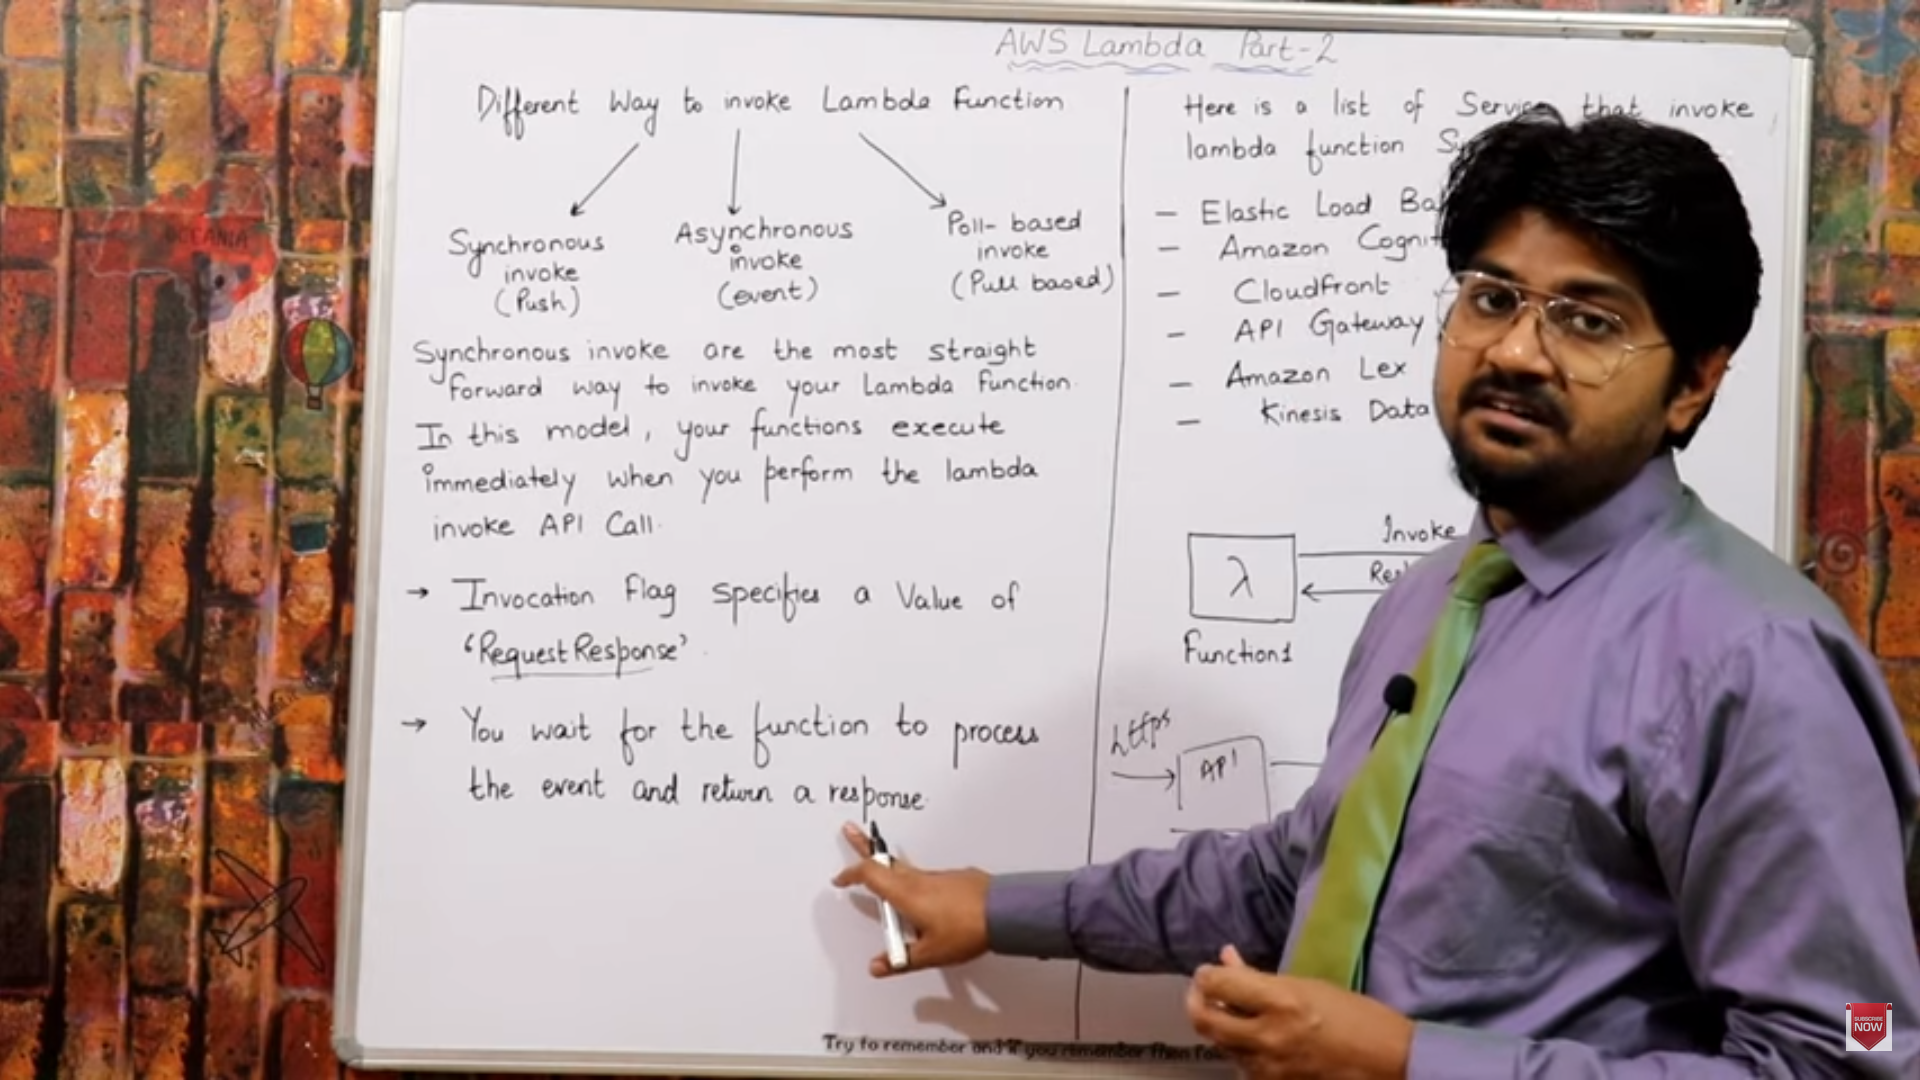 AWS Lambda Part-2
Different Way to invoke Lambda Function
Synchronous
invoke
(Push)
Asynchronous
invoke
(event)
Poll-based
invoke
(Pull based)
Synchronous invoke are the most straight
forward way to invoke your Lambda Function.
In this model, your functions execute
immediately when you perform the lambda
invoke API Call.
→ Invocation Flag specifies a Value of
'RequestResponse'.
→ You wait for the function to process
the event and return a response.
Here is a list of that invoke
lambda function
- Elastic Load
- Amazon
- Cloudfront
- API Gateway
- Amazon Lex
- Kinesis Data
Invoke
λ
Function1
https
API
OCEANIA
Try to remember and if you remember then
SUBSCRIBE
NOW